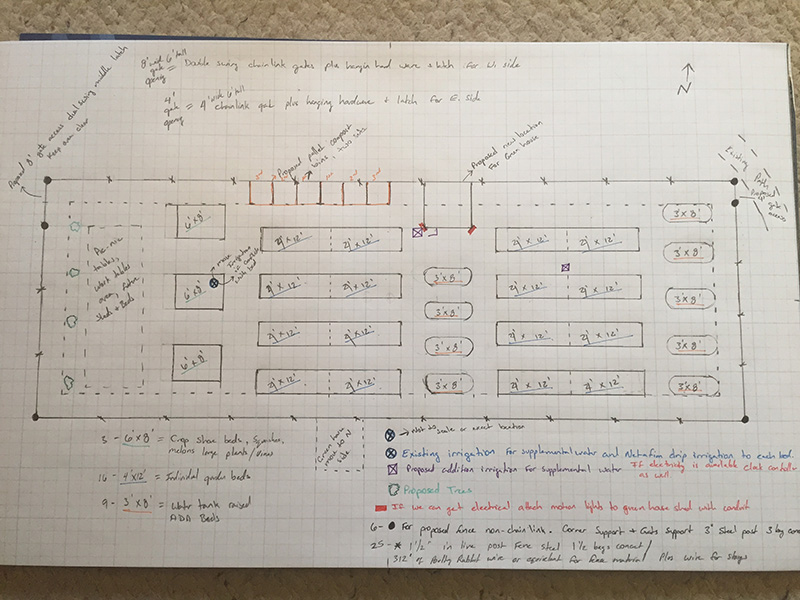 8' wide 6' tall
gate = Double swing chainlink gates plus hangin hard ware + latch for W. side
opening
4' wide 6' tall
4'
gate = chainlink gate plus hanging hardware + latch for E. side
opening
N
Proposed 8' gate access dual swing middle latch
Keep area clear
Proposed pallet compost
bins - two side
Proposed new location
for Green house
Existing
Path
Proposed
gate
access
6'X8'
6'X8'
6'X8'
move
Irrigation
Pic-nic
tables,
work tables
area,
sheds + Beds
4'X12' 4'X12'
4'X12' 4'X12'
4'X12' 4'X12'
4'X12' 4'X12'
3'X8'
3'X8'
3'X8'
3'X8'
4'X12' 4'X12'
4'X12' 4'X12'
4'X12' 4'X12'
4'X12' 4'X12'
3'X8'
3'X8'
3'X8'
3'X8'
3'X8'
Green house
move to N
side
3 - 6'X8' = Crop Share beds, Squashes,
melons large plants/
16 - 4'X12' = Individual garden beds
9 - 3'X8' = Water tank raised
ADA Beds
→ Not to scale or exact location
Existing irrigation for supplemental water and Netafim drip irrigation to each bed.
Proposed addition irrigation for supplemental water If electricity is available clock controller
as well.
Proposed Trees
If we can get electrical attach motion lights to green house shed with conduit
6- ● For proposed fence non-chainlink. Corner Support + Gate Support 3" Steel post 3 bag conc
25 - * 1 1/2" in line post Fence steel 1 1/2 bags concret/
312' of Poultry Rabbit wire or equivalent for fence material Plus wire for stays